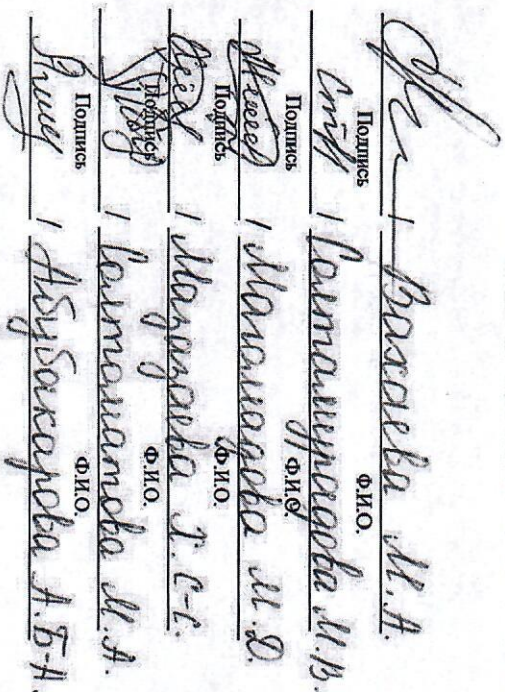 / Вахаева М.А.
Подпись Ф.И.О.
/ Солтамурадова М.В.
Подпись Ф.И.О.
/ Магомадова М.Д.
Подпись Ф.И.О.
/ Магазаева Х. С-С.
Подпись Ф.И.О.
/ Солтаматова М.А.
Подпись Ф.И.О.
/ Абубакарова А.Б-А.